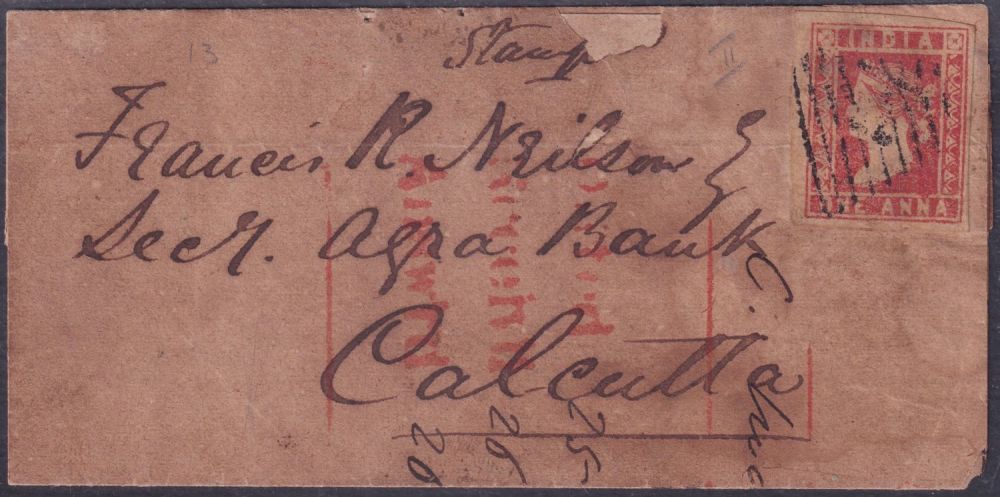 13
Stamp
II
INDIA
ONE ANNA
Francis R. Neilson Esq
Secy. Agra Bank
Calcutta
25
26
20